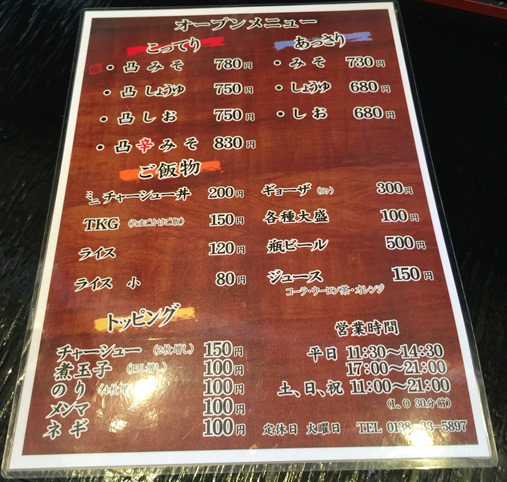 オープンメニュー
こってり
・凸みそ 780円
・凸しょうゆ 750円
・凸しお 750円
・凸辛みそ 830円
あっさり
・みそ 730円
・しょうゆ 680円
・しお 680円
ご飯物
ミニチャーシュー丼 200円
TKG (たまごかけご飯) 150円
ライス 120円
ライス 小 80円
ギョーザ 300円
各種大盛 100円
瓶ビール 500円
ジュース 150円
コーラ・ウーロン茶・オレンジ
トッピング
チャーシュー (2枚増し) 150円
煮玉子 100円
のり (4枚増し) 100円
メンマ 100円
ネギ 100円
営業時間
平日 11:30〜14:30
17:00〜21:00
土、日、祝 11:00〜21:00
(L.O 30分前)
定休日 火曜日 TEL 0138-33-5897